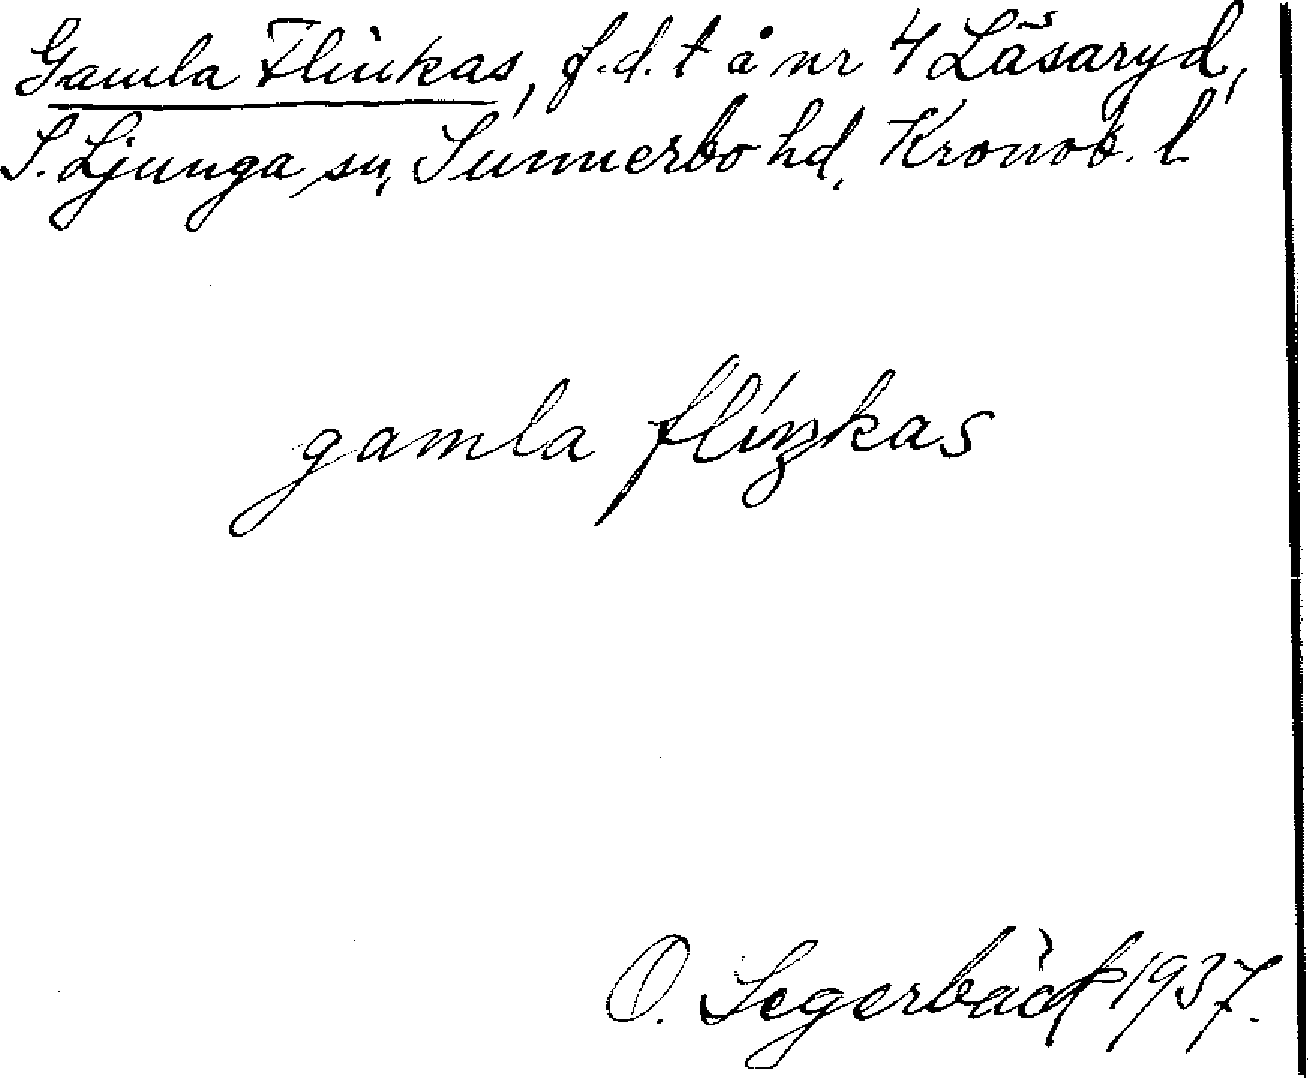 Gamla Flinkas, f.d. t å nr 4 Läsaryd,
S. Ljunga sn, Sunnerbo hd, Kronob. l.
gamla flíŋkas
O. Segerbäck 1937.